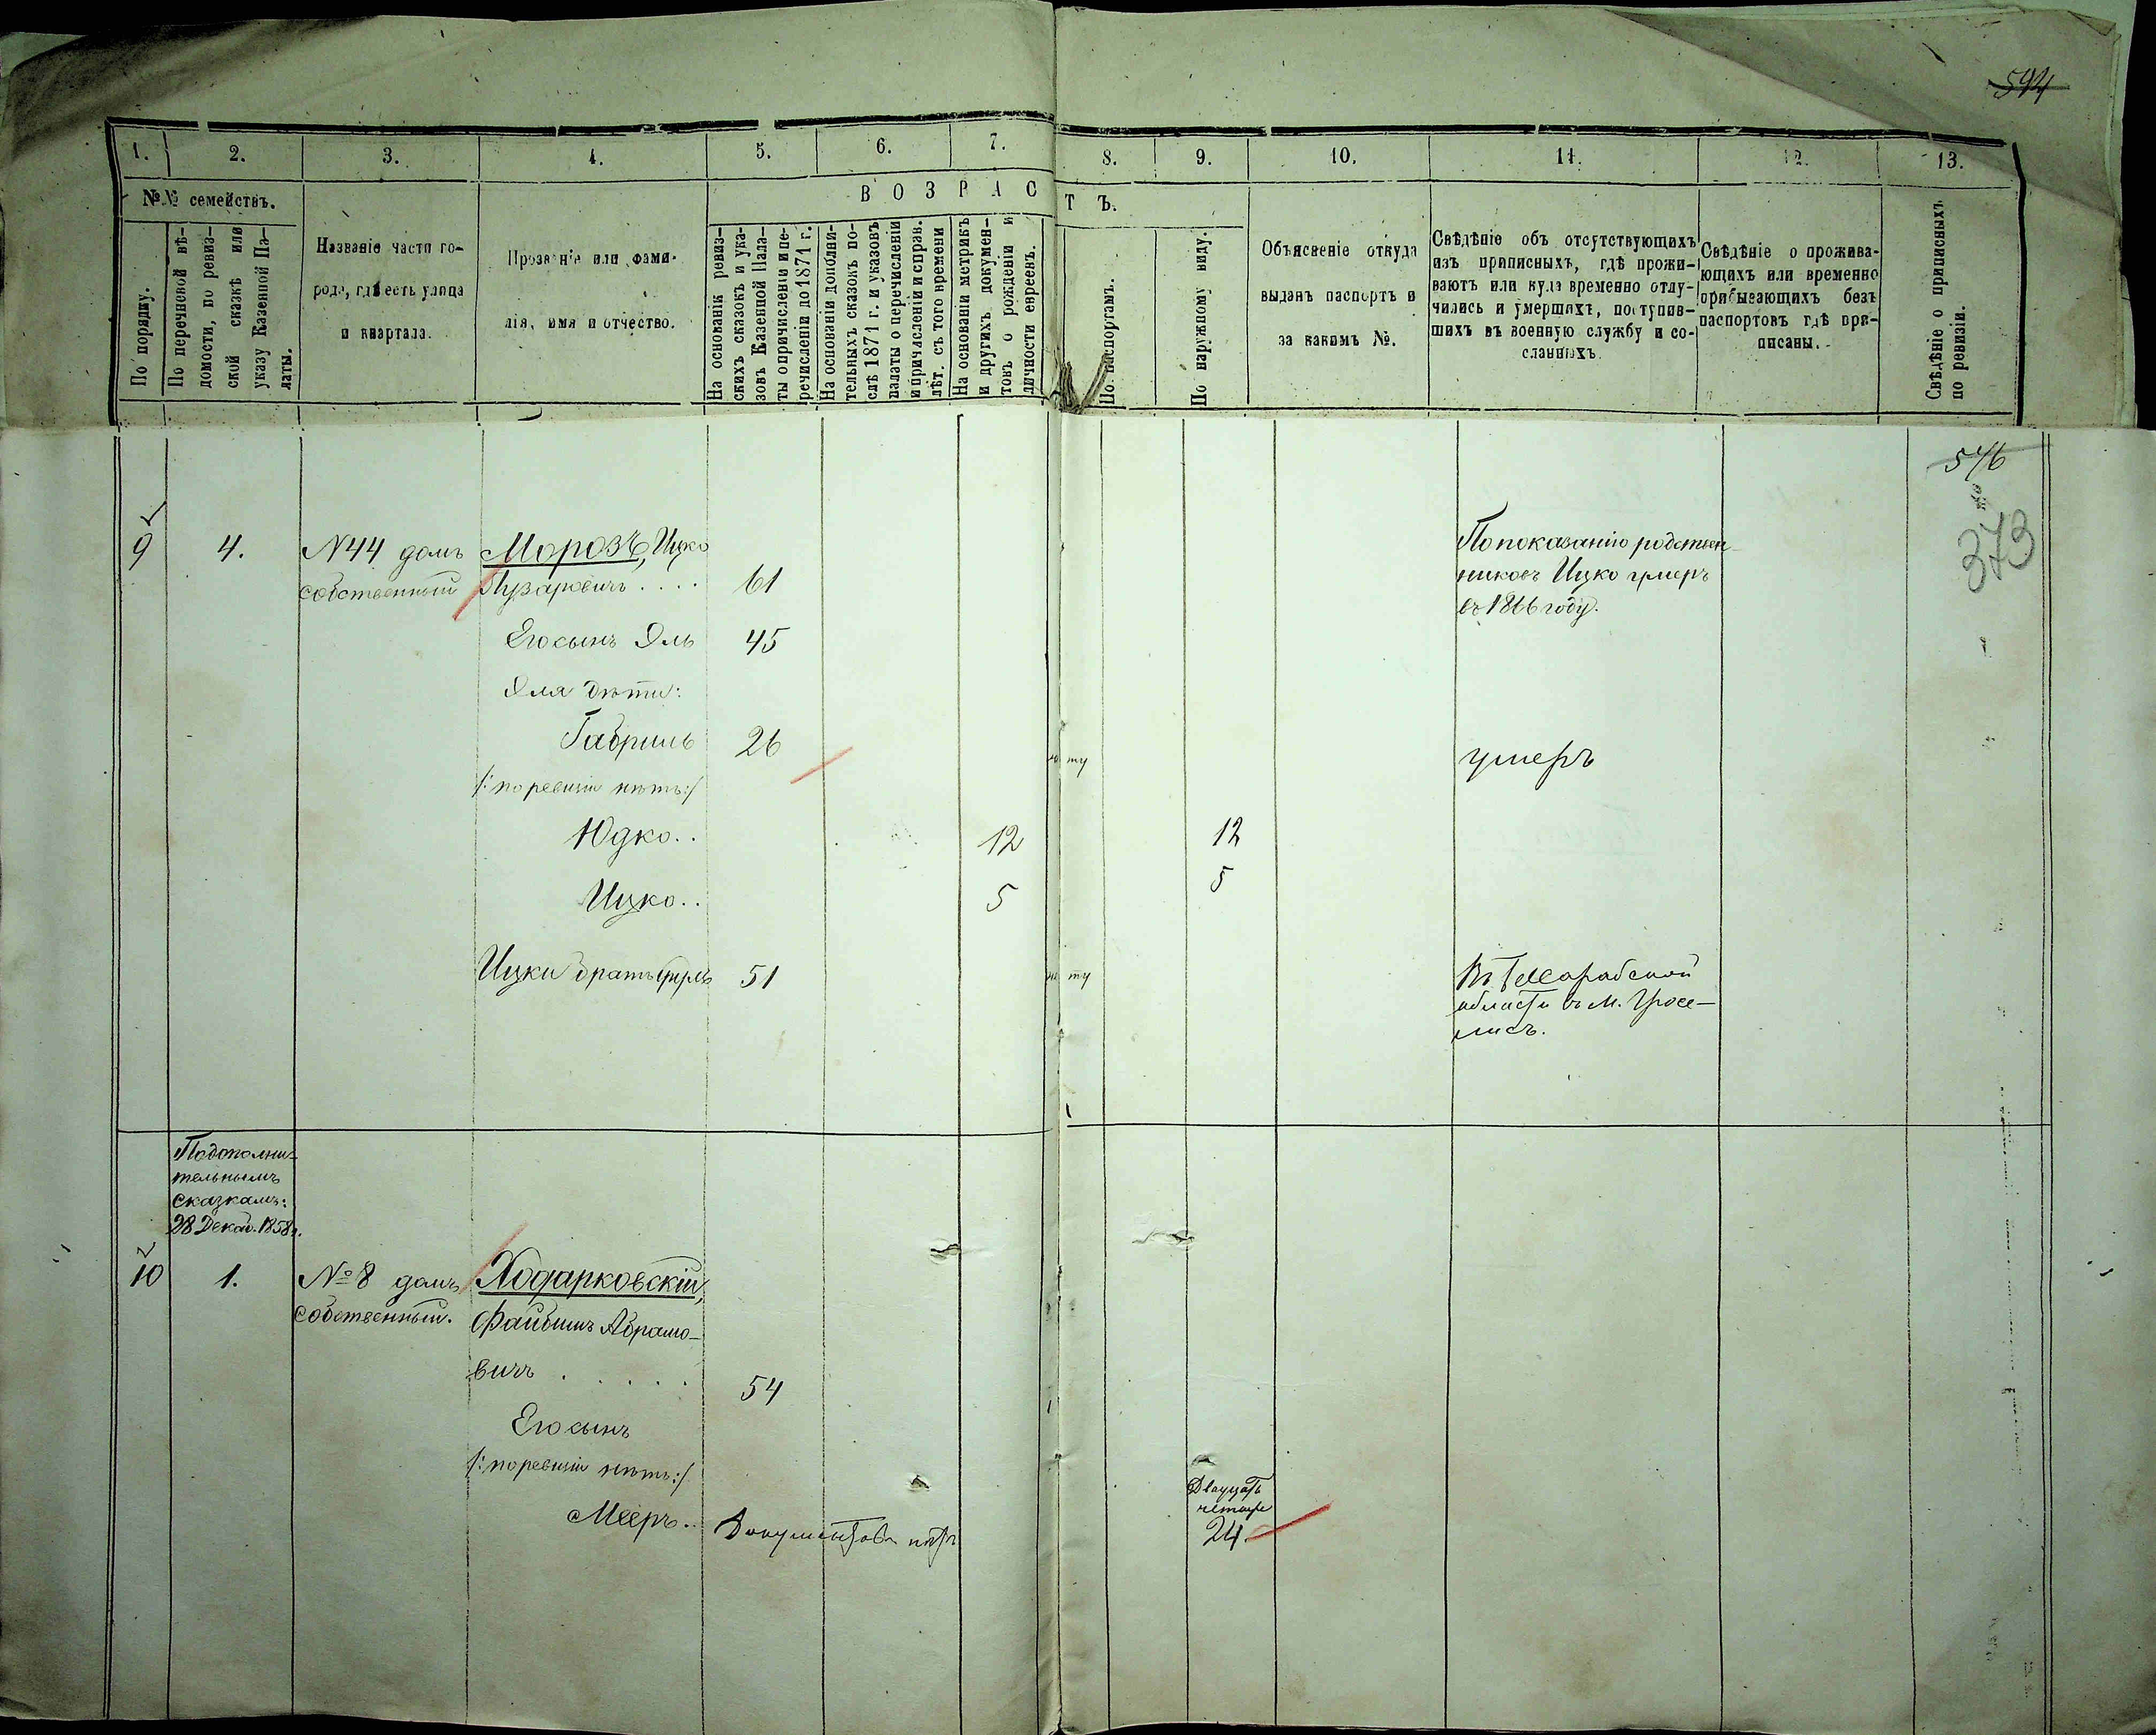 594
1. 2. 3. 4. 5. 6. 7. 8. 9. 10. 11. 12. 13.
№№ семействъ.
По порядку.
По перечневой вѣ-
домости, по ревиз-
ской сказкѣ или
указу Казенной Па-
латы.
Названіе части го-
рода, гдѣ есть улица
и квартала.
Прозваніе или фами-
лія, имя и отчество.
ВОЗРАСТЪ.
На основаніи ревиз-
скихъ сказокъ и ука-
зовъ Казенной Пала-
ты о причисленіи и пе-
речисленіи до 1871 г.
На основаніи дополни-
тельныхъ сказокъ по-
слѣ 1871 г. и указовъ
палаты о перечисленіи
и причисленіи и справ.
лѣт. съ того времени
На основаніи метрикъ
и другихъ докумен-
товъ о рожденіи и
личности евреевъ.
По паспортамъ.
По наружному виду.
Объясненіе откуда
выданъ паспортъ и
за какимъ №.
Свѣдѣніе объ отсутствующихъ
изъ приписныхъ, гдѣ прожи-
ваютъ или куда временно отлу-
чились и умершихъ, поступив-
шихъ въ военную службу и со-
сланныхъ.
Свѣдѣніе о прожива-
ющихъ или временно
прибывающихъ безъ
паспортовъ гдѣ при-
писаны.
Свѣдѣніе о приписныхъ
по ревизіи.
576
373
9 4. N44 домъ
собственный
Морозъ, Ицко
Лузаровичъ .... 61
По показанію родствен-
никовъ Ицко умеръ
въ 1866 году.
Его сынъ Эль 45
Эля дѣти:
Габриль 26 умеръ
/: по ревизіи нѣтъ :/
Юдко.. 12 12
Ицко.. 5 5
Ицки братъ 51
Въ Бессарабской
области въ м.
Подополни-
тельнымъ
сказкамъ:
28 Декаб. 1858 г.
10 1. №8 домъ
собственный.
Ходарковскій,
Файбишъ Абрамо-
вичъ ..... 54
Его сынъ
/: по ревизіи нѣтъ :/
Мееръ.. Документовъ нѣтъ
Двадцать
четыре
24.